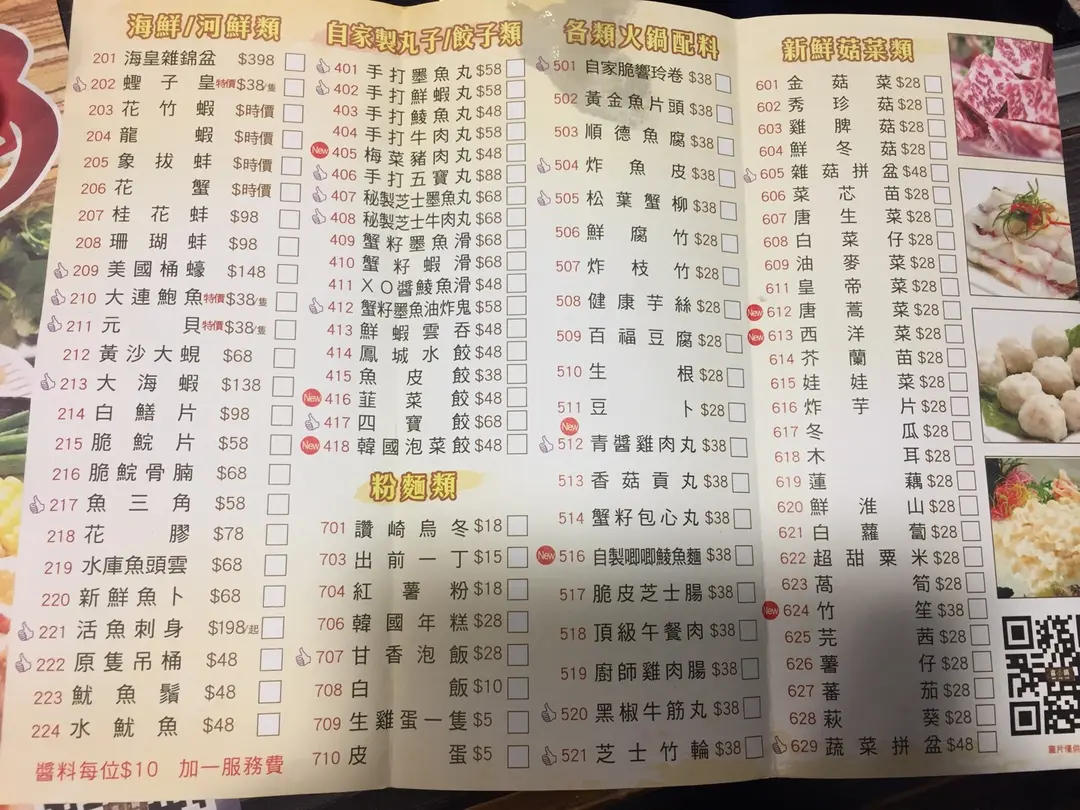 海鮮/河鮮類
201 海皇雜錦盆 $398
202 蟶子皇 特價$38/隻
203 花竹蝦 $時價
204 龍蝦 $時價
205 象拔蚌 $時價
206 花蟹 $時價
207 桂花蚌 $98
208 珊瑚蚌 $98
209 美國桶蠔 $148
210 大連鮑魚 特價$38/隻
211 元貝 特價$38/隻
212 黃沙大蜆 $68
213 大海蝦 $138
214 白鱔片 $98
215 脆鯇片 $58
216 脆鯇骨腩 $68
217 魚三角 $58
218 花膠 $78
219 水庫魚頭雲 $68
220 新鮮魚卜 $68
221 活魚刺身 $198/起
222 原隻吊桶 $48
223 魷魚鬚 $48
224 水魷魚 $48
醬料每位$10 加一服務費
自家製丸子/餃子類
401 手打墨魚丸 $58
402 手打鮮蝦丸 $58
403 手打鯪魚丸 $48
404 手打牛肉丸 $58
New 405 梅菜豬肉丸 $48
406 手打五寶丸 $88
407 秘製芝士墨魚丸 $68
408 秘製芝士牛肉丸 $68
409 蟹籽墨魚滑 $68
410 蟹籽蝦滑 $68
411 XO醬鯪魚滑 $48
412 蟹籽墨魚油炸鬼 $58
413 鮮蝦雲吞 $48
414 鳳城水餃 $48
415 魚皮餃 $38
New 416 韮菜餃 $48
417 四寶餃 $68
New 418 韓國泡菜餃 $48
粉麵類
701 讚崎烏冬 $18
703 出前一丁 $15
704 紅薯粉 $18
706 韓國年糕 $28
707 甘香泡飯 $28
708 白飯 $10
709 生雞蛋一隻 $5
710 皮蛋 $5
各類火鍋配料
501 自家脆響玲卷 $38
502 黃金魚片頭 $38
503 順德魚腐 $38
504 炸魚皮 $38
505 松葉蟹柳 $38
506 鮮腐竹 $28
507 炸枝竹 $28
508 健康芋絲 $28
509 百福豆腐 $28
510 生根 $28
511 豆卜 $28
New
512 青醬雞肉丸 $38
513 香菇貢丸 $38
514 蟹籽包心丸 $38
New 516 自製唧唧鯪魚麵 $38
517 脆皮芝士腸 $38
518 頂級午餐肉 $38
519 廚師雞肉腸 $38
520 黑椒牛筋丸 $38
521 芝士竹輪 $38
新鮮菇菜類
601 金菇菜 $28
602 秀珍菇 $28
603 雞脾菇 $28
604 鮮冬菇 $28
605 雜菇拼盆 $48
606 菜芯苗 $28
607 唐生菜 $28
608 白菜仔 $28
609 油麥菜 $28
611 皇帝菜 $28
New 612 唐蒿菜 $28
New 613 西洋菜 $28
614 芥蘭苗 $28
615 娃娃菜 $28
616 炸芋片 $28
617 冬瓜 $28
618 木耳 $28
619 蓮藕 $28
620 鮮淮山 $28
621 白蘿蔔 $28
622 超甜粟米 $28
623 萵筍 $28
New 624 竹笙 $38
625 芫茜 $28
626 薯仔 $28
627 蕃茄 $28
628 萩葵 $28
629 蔬菜拼盆 $48
圖片僅供